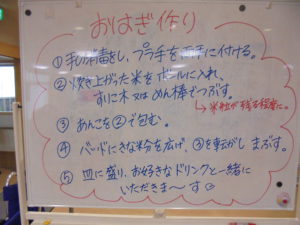 おはぎ作り
①手の消毒をし、プラ手を両手に付ける。
②炊き上がった米をボールに入れ、
すりこ木又はめん棒でつぶす。
→米粒が残る程度に。
③ あんこを②で包む。
④ バットにきな粉を広げ、③を転がし まぶす。
⑤ 皿に盛り、お好きなドリンクと一緒に
いただきま〜す